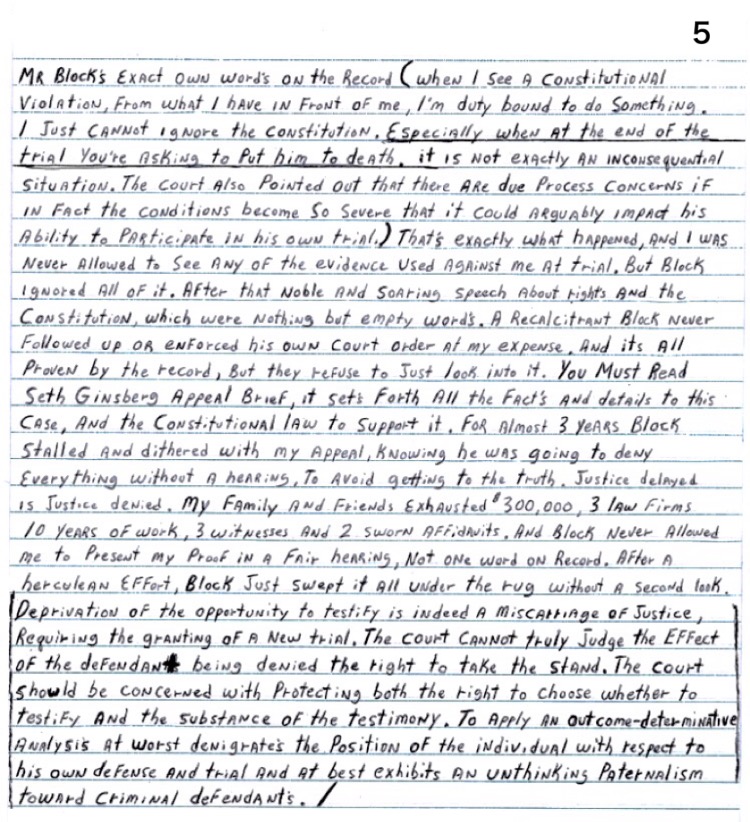 5
Mr Block's exact own word's on the Record (when I see a Constitutional
Violation, From what I have in Front of me, I'm duty bound to do Something.
I Just cannot ignore the constitution. Especially when at the end of the
trial You're asking to Put him to death. it is not exactly an inconsequential
Situation. The court Also Pointed out that there are due Process Concerns if
in fact the conditions become So Severe that it could arguably impact his
Ability to Participate in his own trial.) That's exactly what happened, and I was
Never Allowed to See Any of the evidence Used Against me At trial. But Block
ignored All of it. After that Noble And Soaring Speech About rights And the
Constitution, which were Nothing but empty word's. A Recalcitrant Block Never
Followed up or enforced his own Court order At my expense. And its All
Proven by the record, But they refuse to Just look into it. You Must Read
Seth Ginsberg Appeal Brief, it set's Forth All the Fact's And details to this
Case, And the Constitutional law to Support it. For Almost 3 years Block
Stalled And dithered with my Appeal, Knowing he was going to deny
Everything without A hearing, To Avoid getting to the truth. Justice delayed
is Justice denied. My Family And Friends Exhausted $300,000, 3 law Firms
10 years of work, 3 witnesses And 2 Sworn Affidavits. And Block Never Allowed
me to Present my Proof in A Fair hearing, Not one word on Record. After A
herculean Effort, Block Just swept it All under the rug without A second look.
Deprivation of the opportunity to testify is indeed A Miscarriage of Justice,
Requiring the granting of A New trial. The court Cannot truly Judge the Effect
of the defendant being denied the right to take the Stand. The court
Should be concerned with Protecting both the right to choose whether to
testify And the substance of the testimony. To Apply An outcome-determinative
Analysis At worst denigrate's the Position of the individual with respect to
his own defense And trial And At best exhibits An unthinking Paternalism
toward Criminal defendant's. /